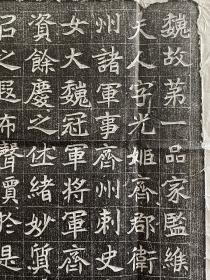 魏故第一品家監緱
夫人字光姬齊郡衛
州諸軍事齊州刺史
女大魏冠軍將軍齊
資餘慶之休緒妙質
召之遐布聲賈於是